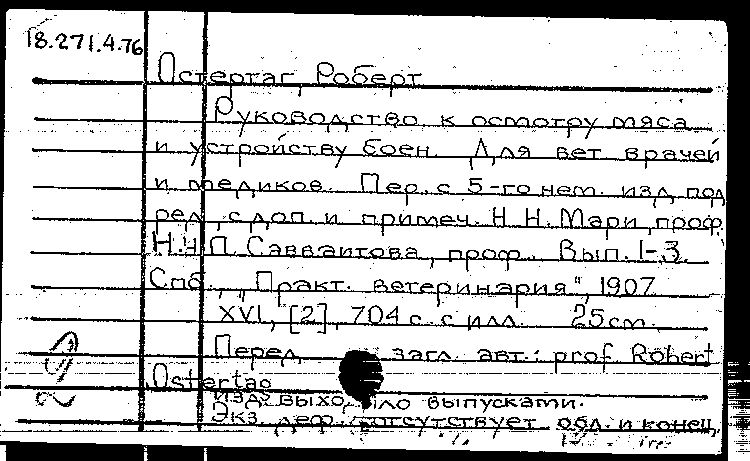 18.271.4.76
Остертаг, Роберт
Руководство к осмотру мяса
и устройству боен. Для вет. врачей
и медиков. Пер. с 5-го нем. изд. под
ред., с доп. и примеч. Н.Н. Мари, проф.
П. Савваитова, проф. Вып. 1-3.
Спб., "Практ. ветеринария", 1907
XVI, [2], 704 с. с илл. 25 см.
Перед загл. авт.: prof. Robert
Ostertag
Изд. выхо ило выпусками.
Экз. деф.: отсутствует обл. и конец.